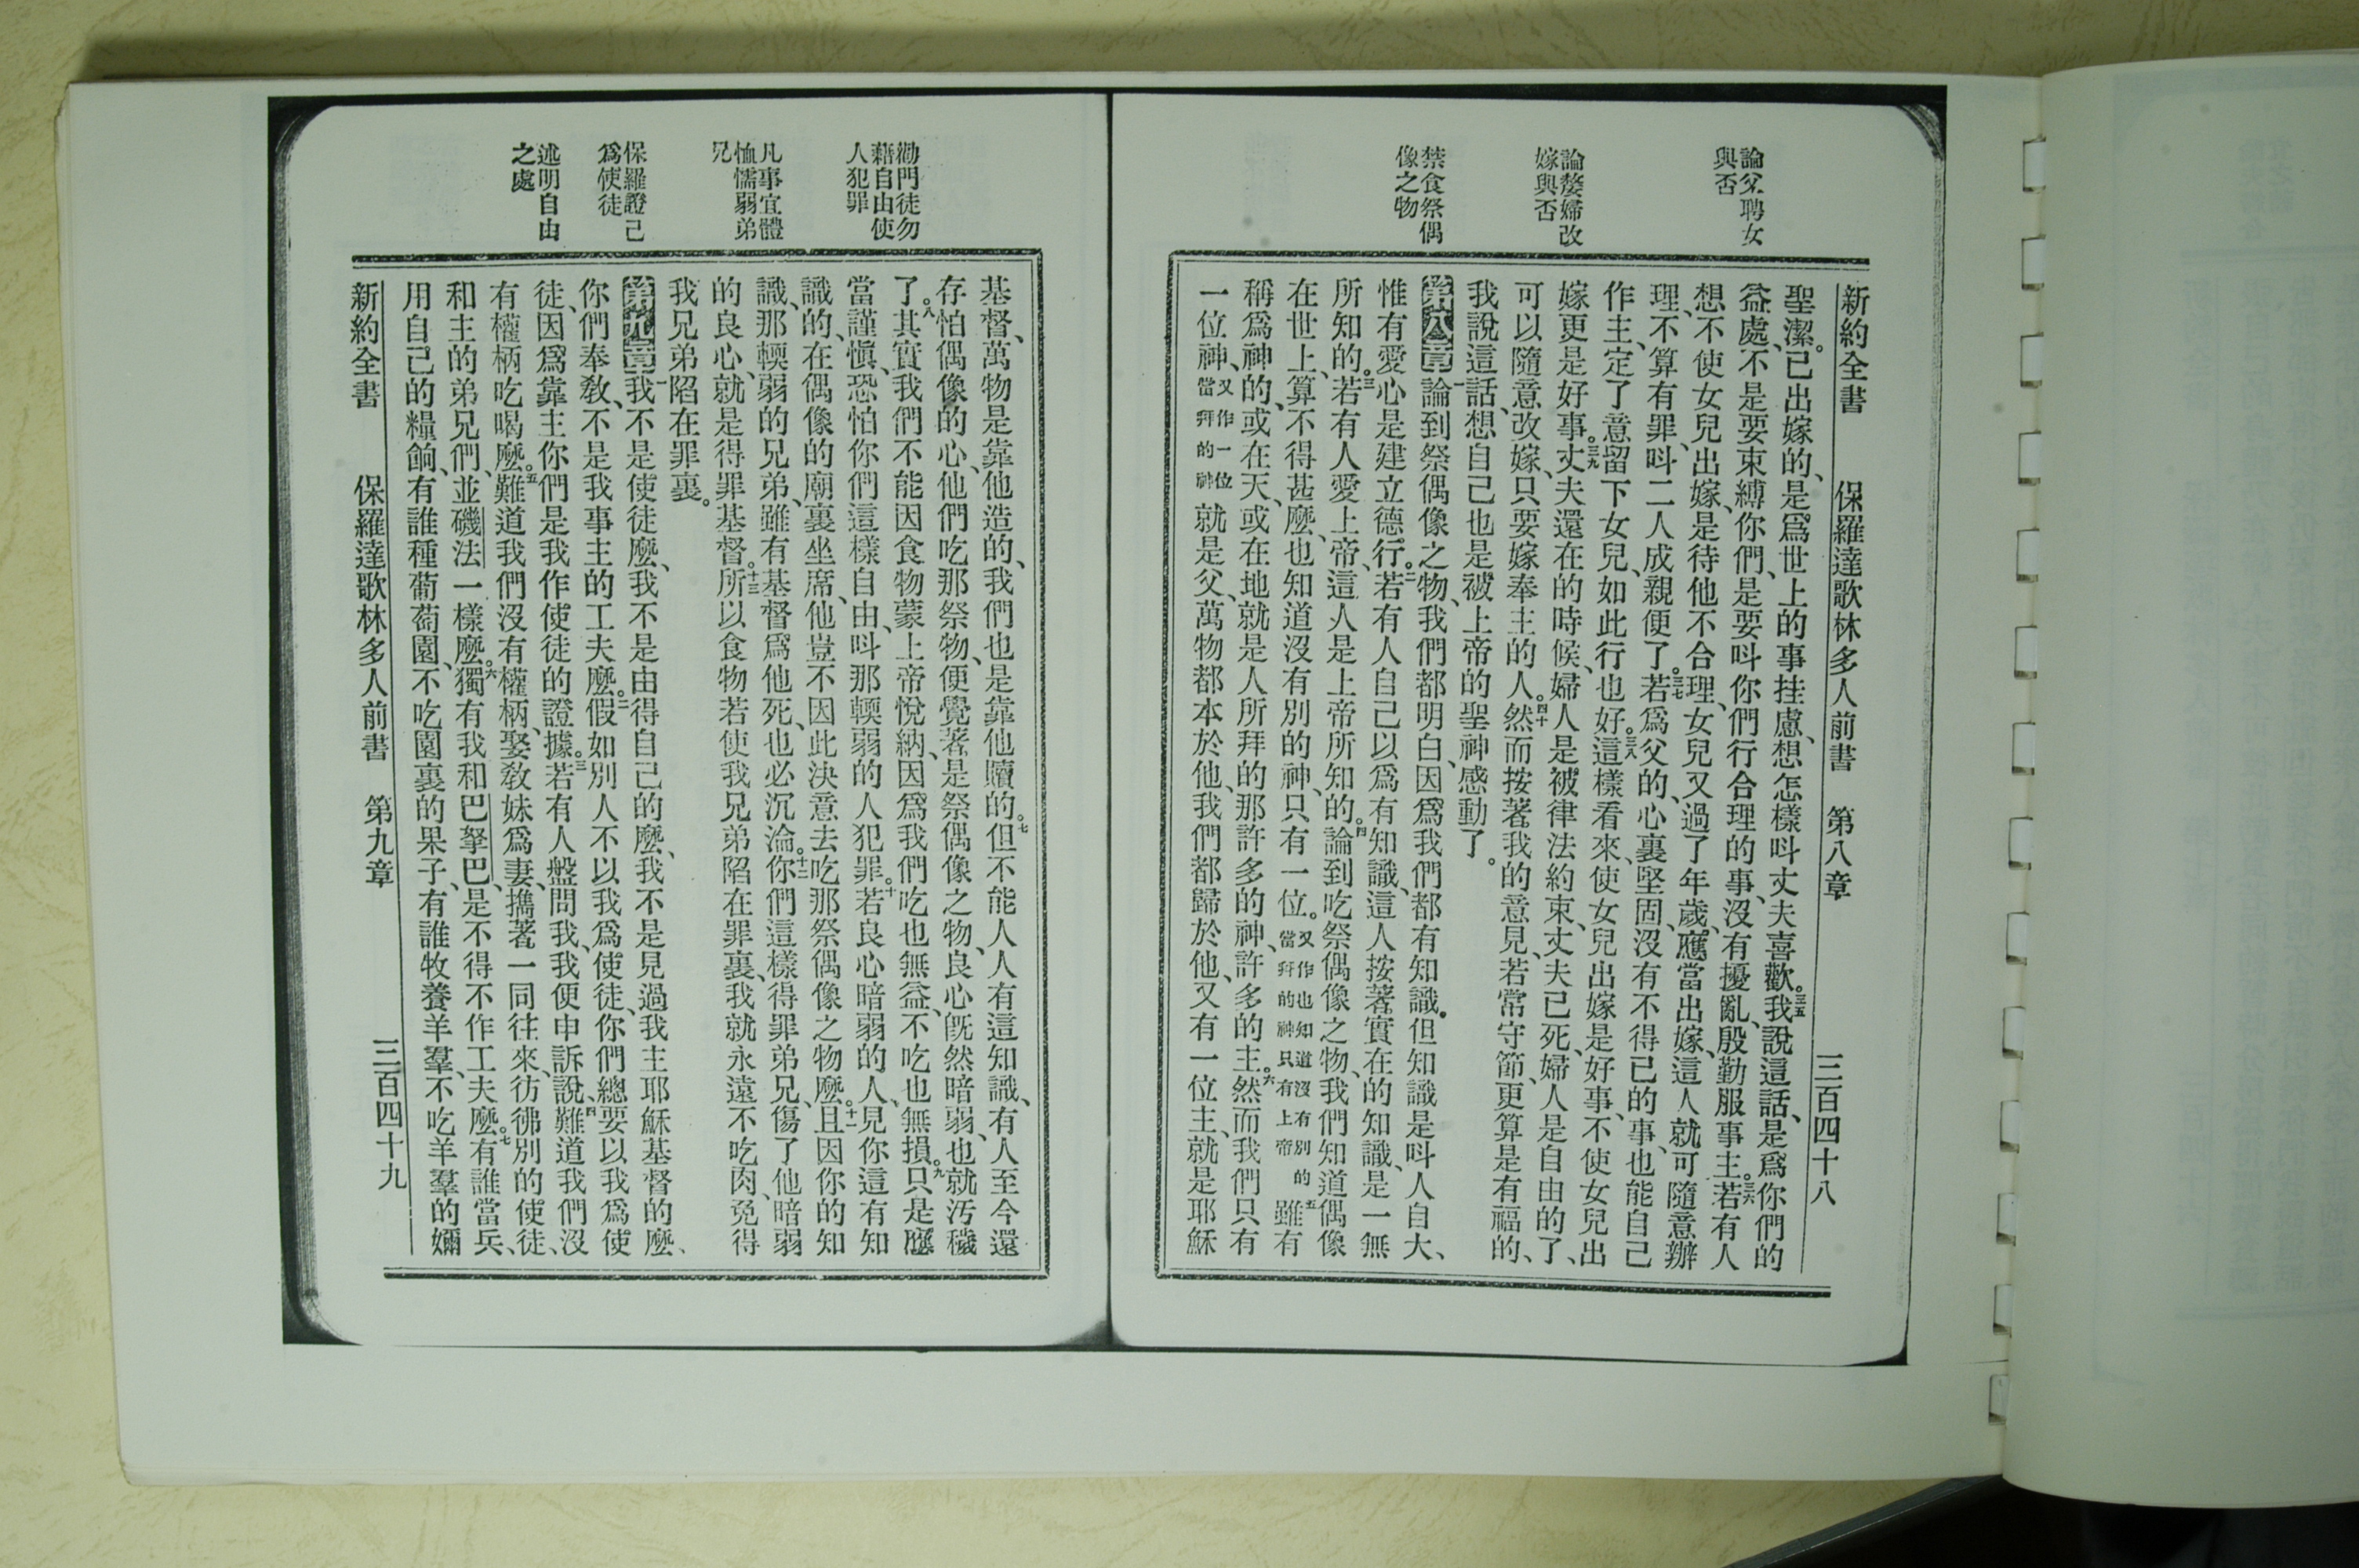 論父聘女
與否
論嫠婦改
嫁與否
禁食祭偶
像之物
新約全書 保羅達歌林多人前書 第八章 三百四十八
聖潔。已出嫁的、是爲世上的事挂慮、想怎樣呌丈夫喜歡。三五我說這話、是爲你們的
益處、不是要束縛你們、是要呌你們行合理的事、沒有擾亂、殷勤服事主。三六若有人
想不使女兒出嫁、是待他不合理、女兒又過了年歲、應當出嫁、這人就可隨意辦
理、不算有罪、呌二人成親便了。三七若爲父的、心裏堅固、沒有不得已的事、也能自己
作主、定了意留下女兒、如此行也好。三八這樣看來、使女兒出嫁是好事、不使女兒出
嫁更是好事。三九丈夫還在的時候、婦人是被律法約束、丈夫已死、婦人是自由的了、
可以隨意改嫁、只要嫁奉主的人。四十然而按著我的意見、若常守節、更算是有福的、
我說這話、想自己也是被上帝的聖神感動了。
第八章一論到祭偶像之物、我們都明白、因爲我們都有知識。但知識是呌人自大、
惟有愛心是建立德行。二若有人自己以爲有知識、這人按著實在的知識、是一無
所知的。三若有人愛上帝、這人是上帝所知的。四論到吃祭偶像之物、我們知道偶像
在世上、算不得甚麼、也知道沒有別的神、只有一位。又作也知道沒有別的當拜的神只有上帝五雖有
稱爲神的、或在天、或在地、就是人所拜的那許多的神、許多的主。六然而我們只有
一位神、又作一位當拜的神就是父、萬物都本於他、我們都歸於他、又有一位主、就是耶穌
勸門徒勿
藉自由使
人犯罪
凡事宜體
恤懦弱弟
兄
保羅證己
爲使徒
述明自由
之處
基督、萬物是靠他造的、我們也是靠他贖的。七但不能人人有這知識、有人至今還
存怕偶像的心、他們吃那祭物、便覺著是祭偶像之物、良心旣然暗弱、也就汚穢
了。八其實我們不能因食物蒙上帝悅納、因爲我們吃也無益、不吃也無損。九只是應
當謹愼、恐怕你們這樣自由、呌那輭弱的人犯罪。十若良心暗弱的人、見你這有知
識的、在偶像的廟裏坐席、他豈不因此決意去吃那祭偶像之物麼。十一且因你的知
識、那輭弱的兄弟、雖有基督爲他死、也必沉淪。十二你們這樣得罪弟兄、傷了他暗弱
的良心、就是得罪基督。十三所以食物若使我兄弟陷在罪裏、我就永遠不吃肉、免得
我兄弟陷在罪裏。
第九章一我不是使徒麼、我不是由得自己的麼、我不是見過我主耶穌基督的麼、
你們奉敎、不是我事主的工夫麼。二假如別人不以我爲使徒、你們總要以我爲使
徒、因爲靠主你們是我作使徒的證據。三若有人盤問我、我便申訴說、四難道我們沒
有權柄吃喝麼。五難道我們沒有權柄、娶敎妹爲妻、擕著一同往來、彷彿別的使徒、
和主的弟兄們、並磯法一樣麼。六獨有我和巴拏巴、是不得不作工夫麼。七有誰當兵、
用自己的糧餉、有誰種葡萄園、不吃園裏的果子、有誰牧養羊羣、不吃羊羣的嬭
新約全書 保羅達歌林多人前書 第九章 三百四十九